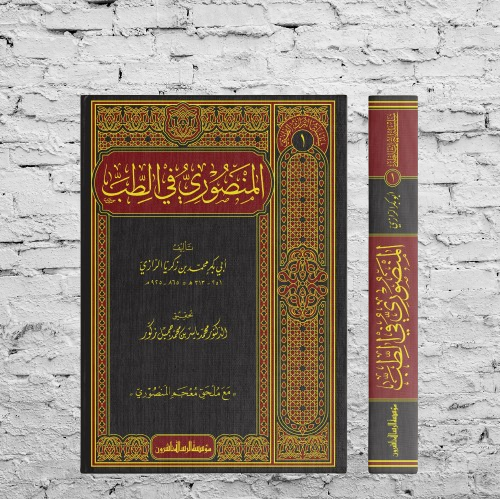 ١
المنصوري في الطب
تأليف
أبي بكر محمد بن زكريا الرازي
٢٥١ - ٣١٣ هـ = ٨٦٥ - ٩٢٥ م
تحقيق
الدكتور محمد ياسر بن محمد جميل زكور
« مع ملحق معجم المنصوري »
١
أبو بكر الرازي
المنصوري في الطب